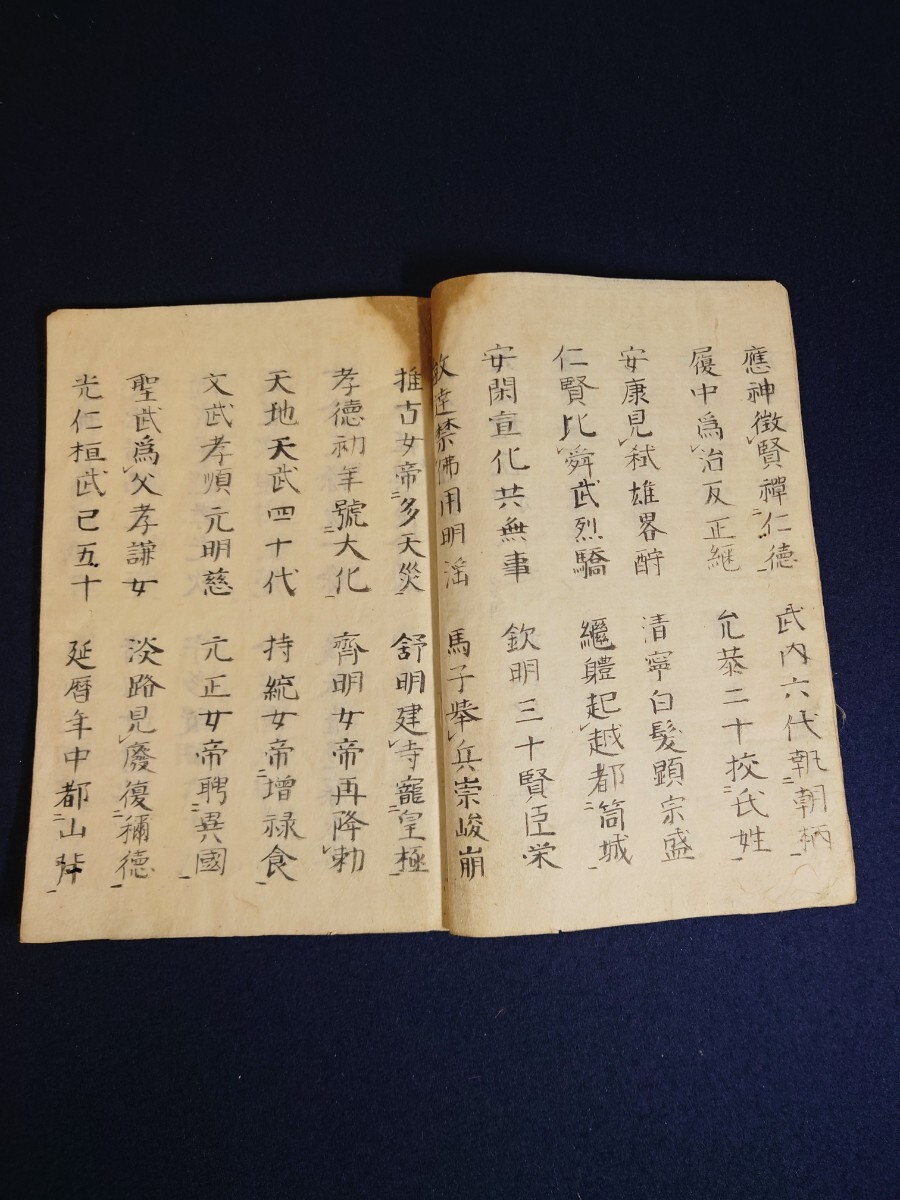 應神徴賢禪仁德　武内六代執朝柄
履中爲治反正継　允恭二十挍氏姓
安康見弑雄畧酧　清寧白髮顕宗盛
仁賢比舜武烈驕　繼軆起越都筒城
安閑宣化共無事　欽明三十賢臣栄
敏達禁佛用明滛　馬子挙兵崇峻崩
推古女帝多天災　舒明建寺寵皇極
孝德初年號大化　齊明女帝再降勅
天地天武四十代　持統女帝増禄食
文武孝順元明慈　元正女帝聘異國
聖武爲父孝謙女　淡路見廢復稱德
光仁桓武已五十　延暦年中都山背